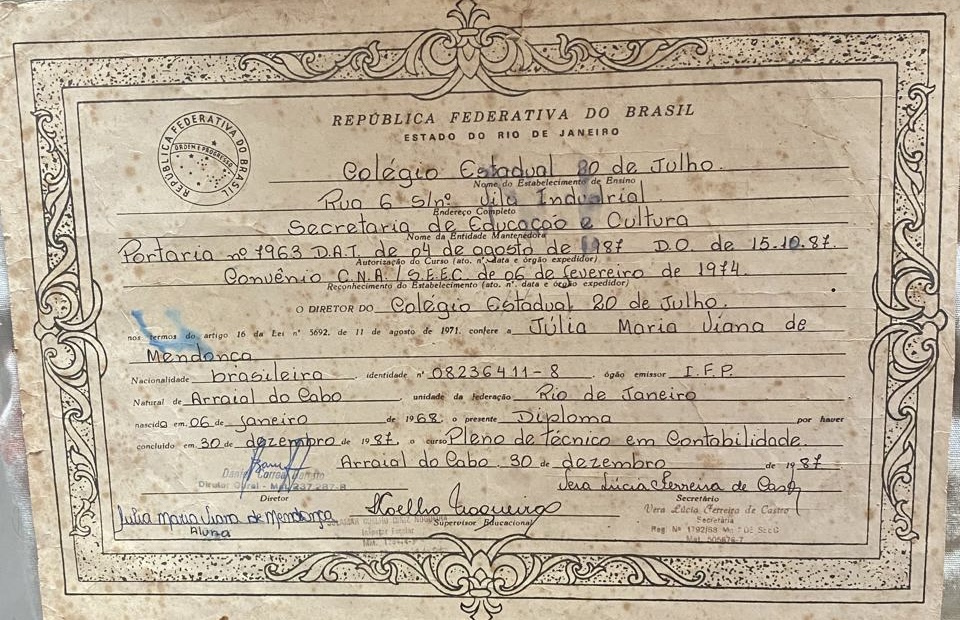 REPÚBLICA FEDERATIVA DO BRASIL
ESTADO DO RIO DE JANEIRO
REPÚBLICA FEDERATIVA DO BRASIL
ORDEM E PROGRESSO
Colégio Estadual 20 de Julho.
Nome do Estabelecimento de Ensino
Rua 6 S/nº Vila Industrial
Endereço Completo
Secretaria de Educação e Cultura
Nome da Entidade Mantenedora
Portaria nº 7963 D.A.T. de 04 de agosto de 1987 D.O. de 15.10.87.
Autorização do Curso (ato, n.º data e órgão expedidor)
Convênio C.N.A./S.E.E.C. de 06 de fevereiro de 1974.
Reconhecimento do Estabelecimento (ato, n.º, data e órgão expedidor)
O DIRETOR DO Colégio Estadual 20 de Julho.
nos termos do artigo 16 da Lei nº 5692, de 11 de agosto de 1971, confere a Júlia Maria Viana de
Mendonça
Nacionalidade brasileira, identidade nº 08236411-8 ógão emissor I.F.P.
Natural de Arraial do Cabo, unidade da federação Rio de Janeiro
nascida em 06 de janeiro de 1968, o presente Diploma por haver
concluido em 30 de dezembro de 1987, o curso Pleno de técnico em Contabilidade.
Arraial do Cabo, 30 de dezembro de 1987
Diretor Geral - Mat. 237.287-8
Diretor
Vera Lúcia Ferreira de Castro
Secretário
Vera Lúcia Ferreira de Castro
Secretária
Reg. Nº 1792/88
Supervisor Educacional
Julia Maria Viana de Mendonça
Aluna